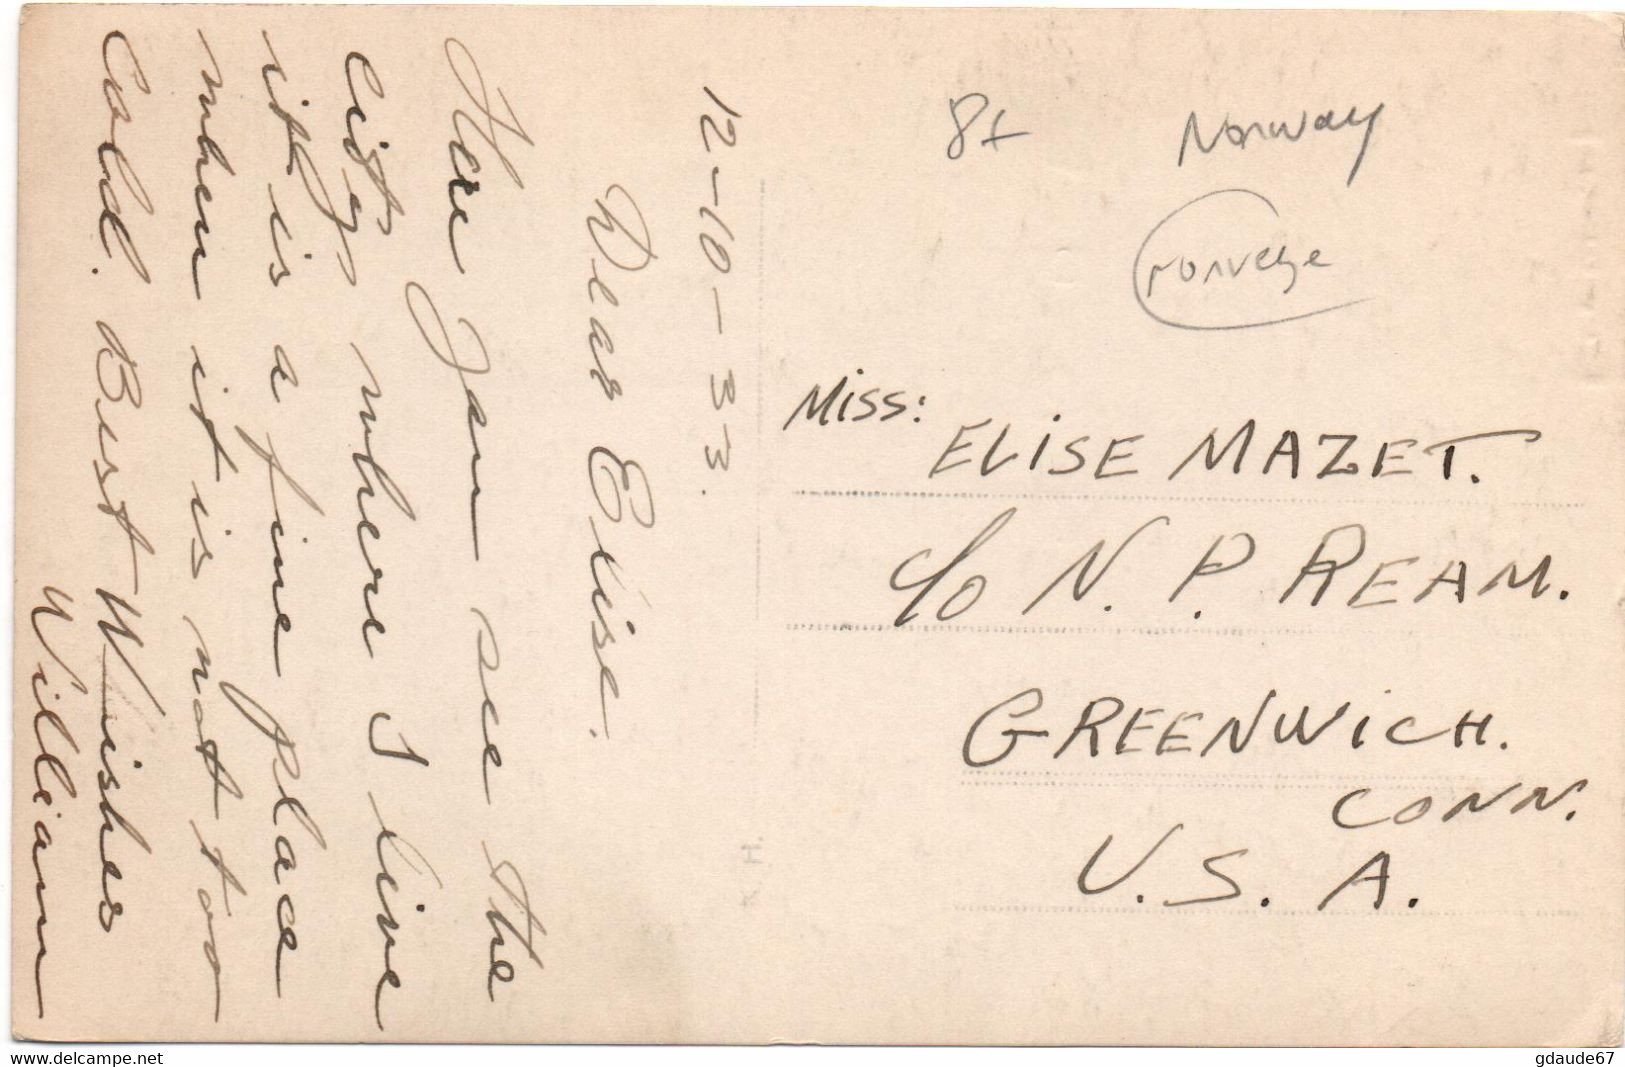 12-10-33.
Dear Elise.
Here you see the
City where I live
it is a fine place
when it is not too
Cold. Best Wishes
William
8t
Norway
norvege
Miss:
ELISE MAZET.
c/o N. P. REAM.
GREENWICH.
CONN.
U.S.A.
www.delcampe.net
gdaude67